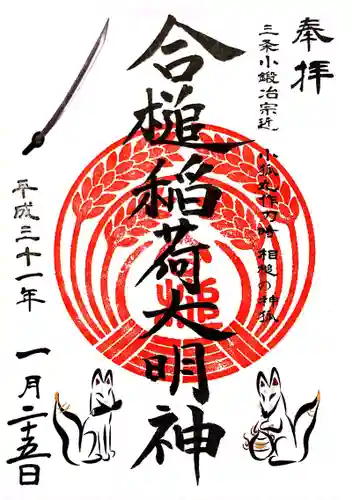 奉拝
三条小鍛冶宗近 小狐丸作刀時 相槌の神狐
合槌稲荷大明神
平成三十一年
一月二十五日